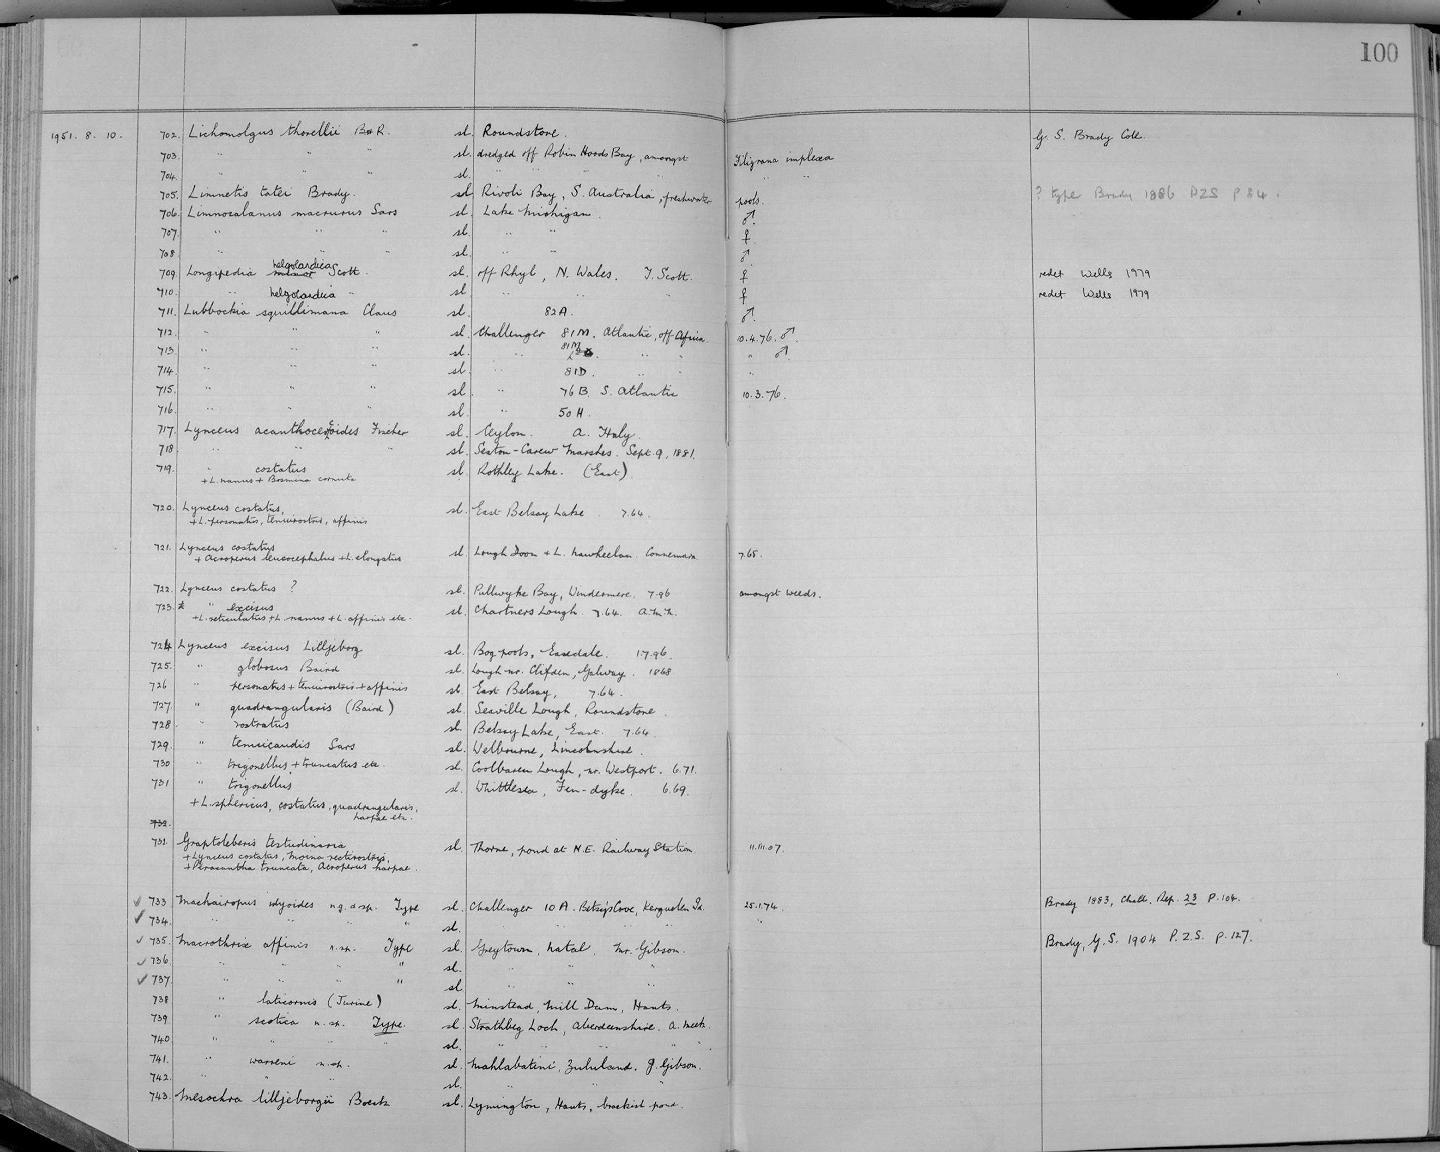 100
1951. 8. 10. 702. Lichomolgus thorellii B & R. sl. Roundstone. G. S. Brady Coll.
703. " " " sl. dredged off Robin Hoods Bay, amongst Filigrana implexa
704. " " " sl. " " " " " "
705. Limnetis tatei Brady. sl. Rivoli Bay, S. Australia, freshwater pools. ? type Brady 1886 PZS p 84.
706. Limnocalanus macrurus Sars sl. Lake Michigan. ♂.
707. " " " sl. " " ♀.
708. " " " sl. " " ♂.
709. Longipedia minor helgolandica Scott. sl. off Rhyl, N. Wales. T. Scott. ♀ redet Wells 1979
710. " helgolandica " sl. " " " ♀ redet Wells 1979
711. Lubbockia squillimana Claus sl. 82A. ♂.
712. " " " sl. Challenger 81M. Atlantic, off Africa. 10.4.76. ♂.
713. " " " sl. " 81M " " " ♂.
714. " " " sl. 81D. " " "
715. " " " sl. " 76B. S. Atlantic 10.3.76.
716. " " " sl. " 50H.
717. Lynceus acanthocercoides Fischer sl. Ceylon. A. Haly.
718. " " " sl. Seaton-Carew Marshes. Sept. 9, 1881.
719. " costatus sl. Rothley Lake. (East)
+ L. nanus + Bosmina cornuta
720. Lynceus costatus, sl. East Belsay Lake 7.64.
+ L. personatus, tenuirostris, affinis
721. Lynceus costatus sl. Lough Doon + L. Nawheelan. Connemara 7.65.
+ Acroperus leucocephalus + L. elongatus
722. Lynceus costatus ? sl. Pullwyke Bay, Windermere. 7.96 amongst weeds.
723. * " excisus sl. Chartners Lough. 7.64. A.M.N.
+ L. reticulatus + L. nanus + L. affinis etc.
724 Lynceus excisus Lilljeborg sl. Bog pools, Easedale. 1.7.96.
725. " globosus Baird sl. Lough nr. Clifden, Galway. 1868
726 " personatus + tenuirostris + affinis sl. East Belsay, 7.64.
727. " quadrangularis (Baird) sl. Seaville Lough, Roundstone.
728 " rostratus sl. Belsay Lake, East. 7.64.
729. " tenuicaudis Sars sl. Welbourne, Lincolnshire.
730 " trigonellus + truncatus etc. sl. Coolbaren Lough, nr. Westport. 6.71.
731 " trigonellus sl. Whittlesea, Fen-dyke. 6.69.
+ L. sphericus, costatus, quadrangularis,
harpae etc.
732.
731. Graptoleberis testudinaria sl. Thorne, pond at N.E. Railway Station 11.111.07.
+ Lynceus costatus, Moina rectirostris,
+ Peracantha truncata, Acroperus harpae.
733 Machairopus idyoides n.g. & sp. Type sl. Challenger 10A. Betsy's Cove, Kerguelen Id. 25.1.74. Brady 1883, Chall. Rep. 23 p. 104.
734. " " " " sl. " " " "
735. Macrothrix affinis n.sp. Type sl. Greytown, Natal. Mr. Gibson. Brady, G.S. 1904 P.Z.S. p. 127.
736 " " " " sl. " " "
737. " " " " sl. " " "
738 " laticornis (Jurine) sl. Minstead, Mill Dam, Hants.
739 " scotica n.sp. Type. sl. Strathbeg Loch, Aberdeenshire. A. Meek.
740 " " " " sl. " " " "
741. " warreni n.sp. sl. Mahlabatini, Zululand. J. Gibson.
742. " " " sl. " " "
743. Mesochra lilljeborgii Boeck sl. Lymington, Hants, brackish pond.